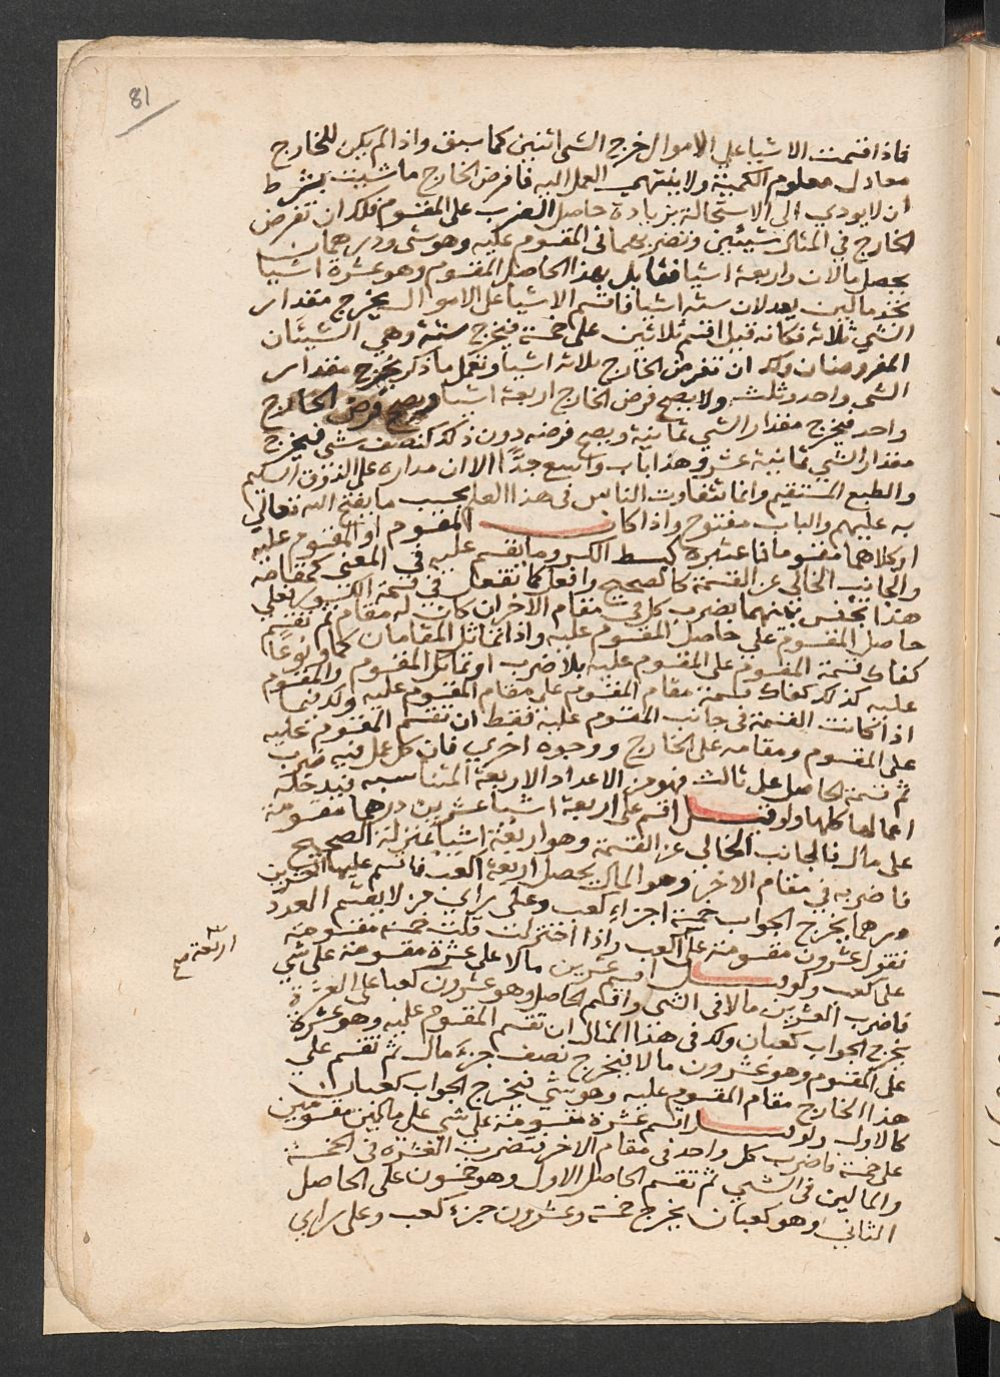 81
فاذا قسمت الاشيا على الاموال خرج الشى اثنين كما سبق واذا لم يكن للخارج
معادل معلوم الكمية ولا ينتهى العمل اليه فافرض الخارج ما شيت بشرط
ان لا يودي الى الاستحالة بزيادة حاصل الضرب على المقسوم فلك ان تفرض
الخارج في المثال شيئين وتضربهما فى المقسوم عليه وهو شى ودرهمان
يحصل مالان واربعة اشيا فقابل بهذا الحاصل المقسوم وهو عشرة اشيا
تجد مالين يعدلان ستة اشيا فاقسم الاشيا على الاموال يخرج مقدار
الشي ثلاثة فكانه قيل اقسم ثلاثين على خمسة فيخرج ستة وهي الشيئان
المفروضان ولك ان تفرض الخارج ثلاثة اشيا وتعمل ما ذكر يخرج مقدار
الشى واحد وثلث ولا يصح فرض الخارج اربعة اشيا ويصح فرض الخارج
واحد فيخرج مقدار الشي ثمانية ويصح فرضه دون ذلك كنصف شى فيخرج
مقدار الشي ثمانية عشر وهذا باب واسع جدًّا الا ان مداره على الذوق السليم
والطبع المستقيم وانما تتفاوت الناس فى هذا العلم بحسب ما يفتح الله تعالى
به عليهم والباب مفتوح واذا كان المقسوم او المقسوم عليه
او كلاهما مقسوما فاعتبره كبسط الكسر وما يقسم عليه في المعنى كمقامه
والجانب الخالى عن القسمة كالصحيح وافعل كما تفعل في قسمة الكسور على
هذا بجنس بينهما بضرب كل في مقام الاخر ان كان له مقام ثم تقسم
حاصل المقسوم على حاصل المقسوم عليه واذا تماثل المقامان كما ونوعًا
كفاك قسمة المقسوم على المقسوم عليه بلا ضرب او تماثل المقسوم والمقسوم
عليه كذلك كفاك قسمة مقام المقسوم على مقام المقسوم عليه ولك فيما
اذا كانت القسمة فى جانب المقسوم عليه فقط ان تقسم المقسوم عليه
على المقسوم ومقامه على الخارج ووجوه اخرى فان كل عمل فيه ضرب
ثم قسمة الحاصل على ثالث فهو من الاعداد الاربعة المتناسبة فيدخله
اعمالها كلها ولو قيل اقسم على اربعة اشيا عشرين درهما مقسومة
على مال فالجانب الخالى عن القسمة وهو اربعة اشيا بمنزلة الصحيح
فاضربه في مقام الاخر وهو المال يحصل اربعة اكعب فاقسم عليها العشرين
درهما يخرج الجواب خمسة اجزاء كعب وعلى راي من لا يقسم العدد
تقول عشرون مقسومة على اكعب واذا اختزلت قلت خمسة مقسومة
على كعب ولو قيل اقسم عشرين مالا على عشرة مقسومة على شي
فاضرب العشرين مالا فى الشى واقسم الحاصل وهو عشرون كعبا على العشرة
يخرج الجواب كعبان ولك فى هذا المثال ان تقسم المقسوم عليه وهو عشرة
على المقسوم وهو عشرون مالا فيخرج نصف جزء مال ثم تقسم على
هذا الخارج مقام المقسوم عليه وهو شي فيخرج الجواب كعبان
كالاول ولو قيل اقسم عشرة مقسومة على شي على مالين مقسومين
على خمسة فاضرب كل واحد فى مقام الاخر فتضرب العشرة فى الخمسة
والمالين فى الشي ثم تقسم الحاصل الاول وهو خمسون على الحاصل
الثاني وهو كعبان يخرج خمسة وعشرون جزء كعب وعلى راي
اربعة صح